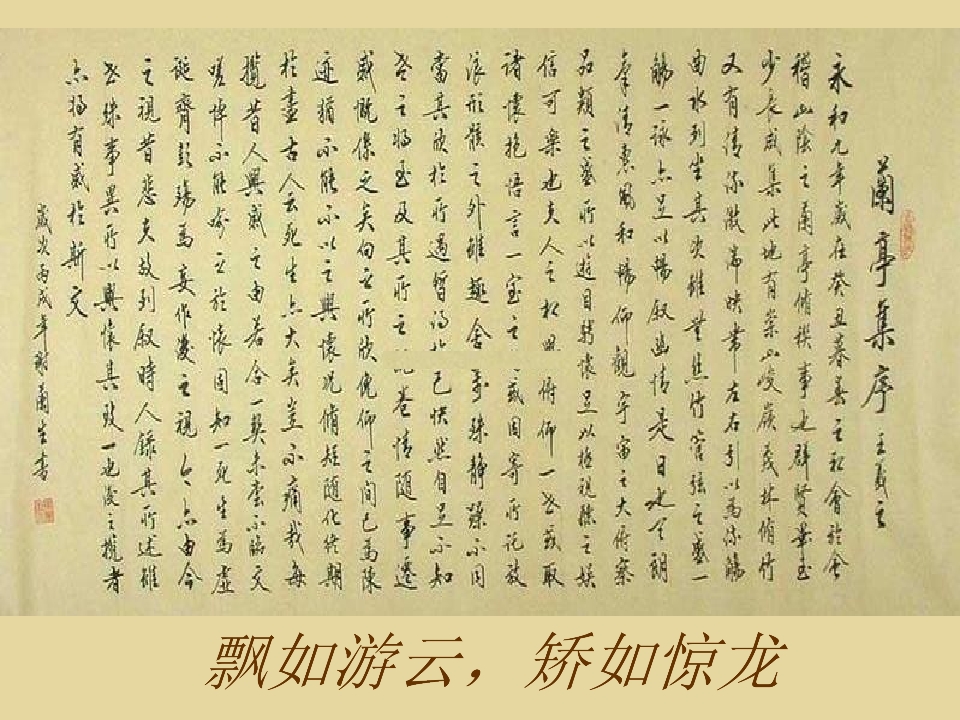 蘭亭集序 王羲之
永和九年歲在癸丑暮春之初會於會
稽山陰之蘭亭脩禊事也群賢畢至
少長咸集此地有崇山峻嶺茂林脩竹
又有清流激湍映帶左右引以為流觴
曲水列坐其次雖無絲竹管弦之盛一
觴一詠亦足以暢叙幽情是日也天朗
氣清惠風和暢仰觀宇宙之大俯察
品類之盛所以遊目騁懷足以極視聽之娛
信可樂也夫人之相與俯仰一世或取
諸懷抱悟言一室之內或因寄所託放
浪形骸之外雖趣舍萬殊靜躁不同
當其欣於所遇暫得於己快然自足不知
老之將至及其所之既倦情隨事遷
感慨係之矣向之所欣俛仰之間已為陳
迹猶不能不以之興懷況脩短隨化終期
於盡古人云死生亦大矣豈不痛哉每
攬昔人興感之由若合一契未嘗不臨文
嗟悼不能喻之於懷固知一死生為虛
誕齊彭殤為妄作後之視今亦由今
之視昔悲夫故列叙時人錄其所述雖
世殊事異所以興懷其致一也後之攬者
亦將有感於斯文
歲次丙戌年謝蘭生書
飘如游云，矫如惊龙